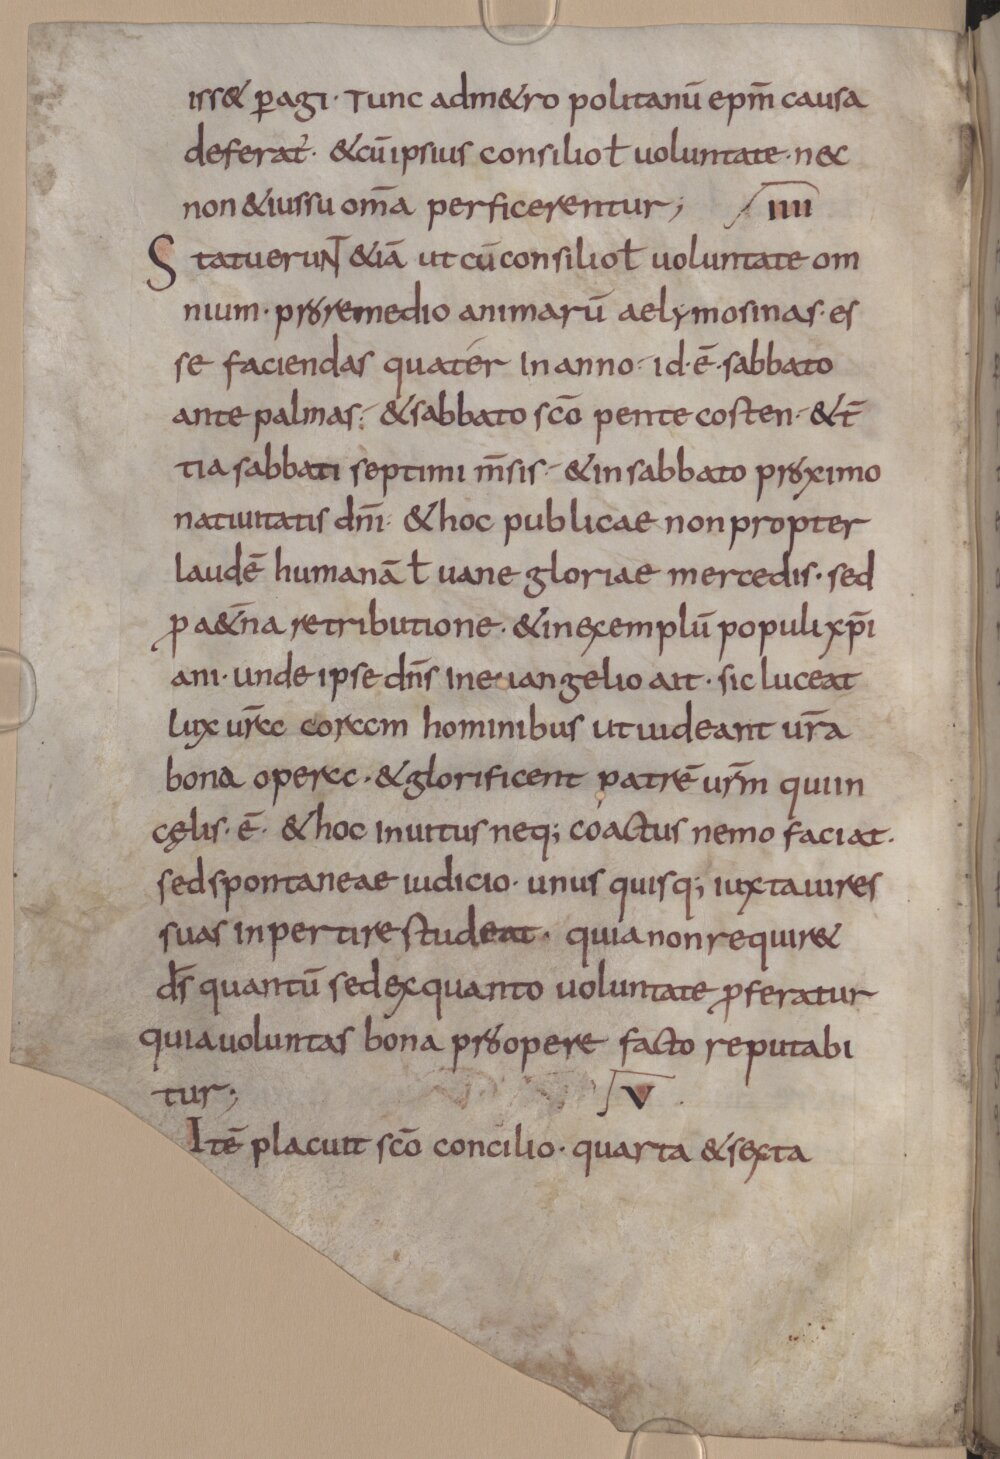 iss& ꝑagi· Tunc adm&ro politanū ep̄m causa
deferat᷑· &cū ipsius consilio ł uoluntate· nec
non & iussu om̄a perficerentur; IIII
StatueruNT &iā ut cū consilio ł uoluntate om
nium· pro remedio animarū aelymosinas· es
se faciendas quater In anno· id· ē· sabbato
ante palmas· & sabbato sc̄o pentecosten· & t̄
tia sabbati septimi m̄sis· & in sabbato proximo
natiuitatis dn̄i· & hoc publicae non propter
laudē humanā ł uane gloriae mercedis· sed
ꝓ a&̄na retributione· & in exemplū populi xp̄i
ani· unde ipse dn̄s In euangelio ait· sic luceat
lux ur̄a coram hominibus ut uideant ur̄a
bona opera· & glorificent patrē ur̄m qui in
cęlis· ē· & hoc inuitus neq; coactus nemo faciat·
sed spontaneae iudicio· unus quisq; iuxta uires
suas inpertire studeat· quia non requir&
ds̄ quantū sed ex quanto uoluntate ꝓferatur
quia uoluntas bona pro opere facto reputabi
tur; V
Itē placuit sc̄o concilio· quarta & sexta